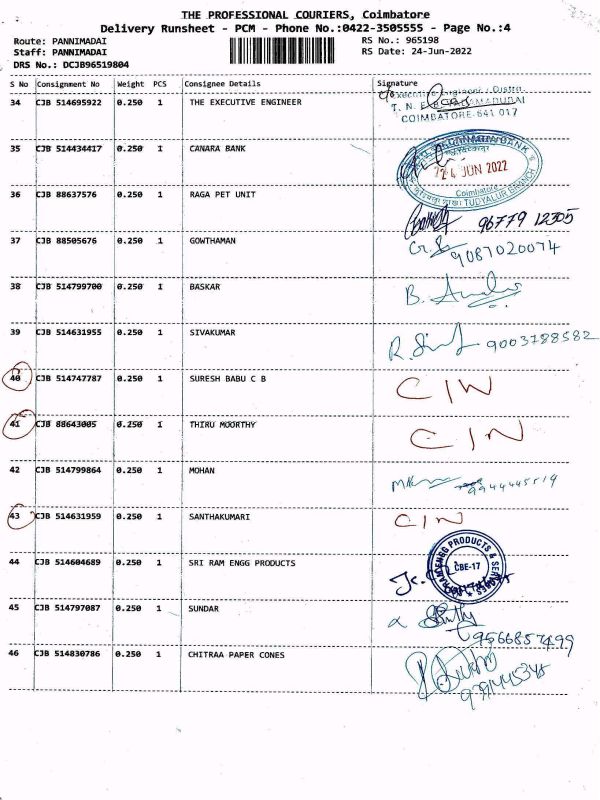 THE PROFESSIONAL COURIERS, Coimbatore
Delivery Runsheet - PCM - Phone No.:0422-3505555 - Page No.:4
Route: PANNIMADAI RS No.: 965198
Staff: PANNIMADAI RS Date: 24-Jun-2022
DRS No.: DCJB96519804
S No Consignment No Weight PCS Consignee Details Signature
34 CJB 514695922 0.250 1 THE EXECUTIVE ENGINEER
COIMBATORE-641 017
35 CJB 514434417 0.250 1 CANARA BANK
CANARA BANK
24 JUN 2022
Coimbatore
TUDYALUR BRANCH
36 CJB 88637576 0.250 1 RAGA PET UNIT 96779 12305
37 CJB 88505676 0.250 1 GOWTHAMAN 9087020074
38 CJB 514799700 0.250 1 BASKAR B.
39 CJB 514631955 0.250 1 SIVAKUMAR R. 9003788582
40 CJB 514747787 0.250 1 SURESH BABU C B CIW
41 CJB 88643005 0.250 1 THIRU MOORTHY CIN
42 CJB 514799864 0.250 1 MOHAN
43 CJB 514631959 0.250 1 SANTHAKUMARI CIN
44 CJB 514604689 0.250 1 SRI RAM ENGG PRODUCTS
ENGG PRODUCTS &
CBE-17
45 CJB 514797087 0.250 1 SUNDAR
9566857499
46 CJB 514830786 0.250 1 CHITRAA PAPER CONES